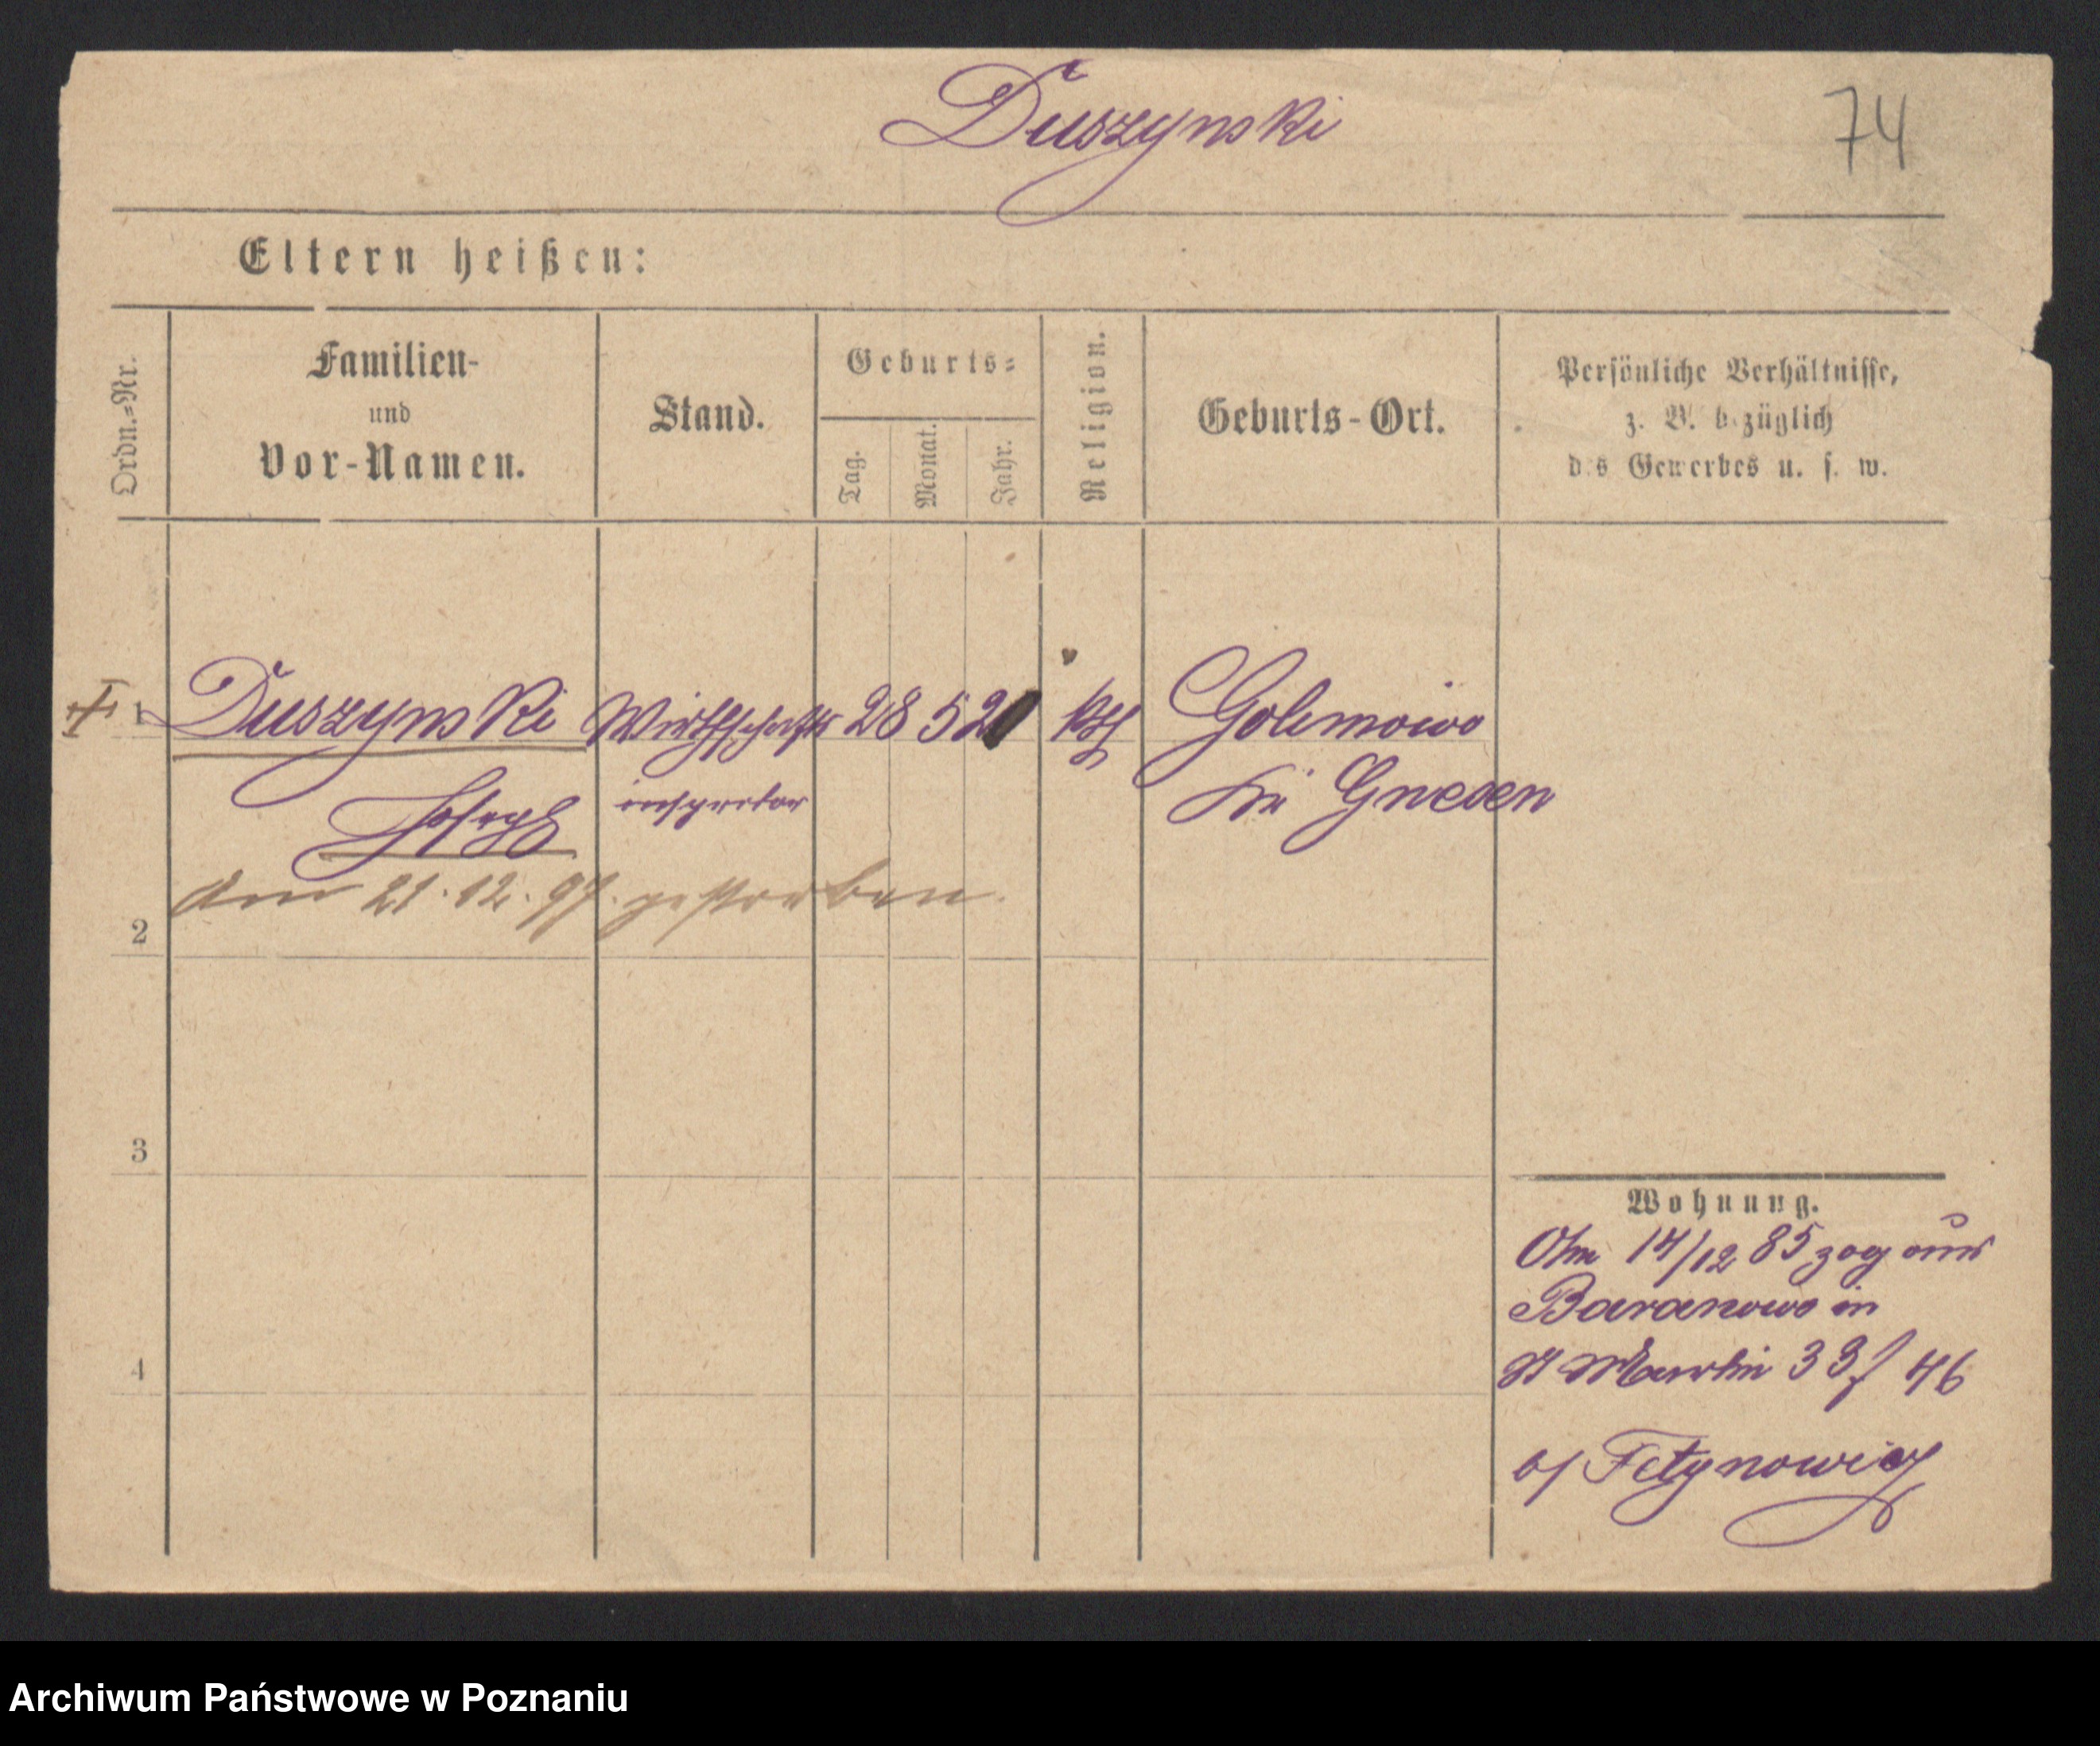 Duszynski
74
Eltern heißen:
Ordn.=Nr.
Familien-
und
Vor-Namen.
Stand.
Geburts=
Tag.
Monat.
Jahr.
Religion.
Geburts-Ort.
Persönliche Verhältnisse,
z. B. bezüglich
des Gewerbes u. s. w.
1 Duszynski Wirthschafts 28 5 2 kth Golimowo
Joseph inspector Kr Gnesen
am 21.12.97. gestorben.
2
3
4
Wohnung.
Am 14/12 85 zog aus
Baranowo in
St Martin 33/ 46
b/ Fetynowicz
Archiwum Państwowe w Poznaniu